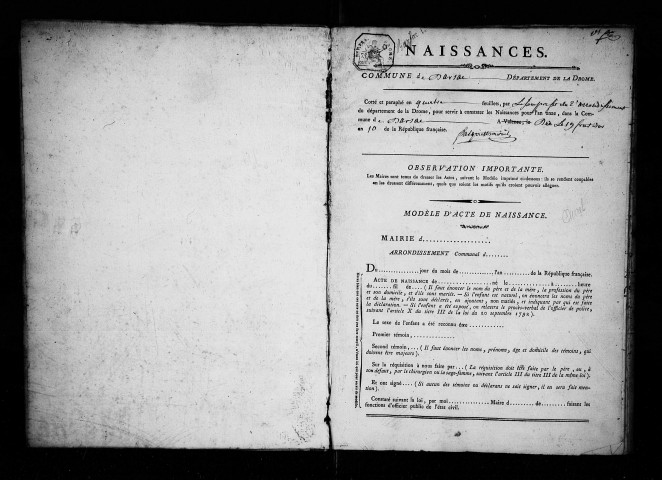 NAISSANCES.
COMMUNE de Barsac DÉPARTEMENT DE LA DROME.
Cotté et paraphé en quatre feuillets, par le de l'arrondissement
du département de la Drome, pour servir à constater les Naissances pour l'an onze, dans la Com-
mune de Barsac A Valence, le Die Le 19 fructidor
an 10 de la République française.
OBSERVATION IMPORTANTE.
Les Maires sont tenus de dresser les Actes, suivant le Modèle imprimé ci-dessous: ils se rendent coupables
en les dressant différemment, quels que soient les motifs qu'ils croient pouvoir alléguer.
MODÈLE D'ACTE DE NAISSANCE.
MAIRIE d....................
ARRONDISSEMENT Communal d........
Du............jour du mois de............l'an..........de la République française.
ACTE DE NAISSANCE de................né le..............à..........heure
du......fil de.... (Il faut énoncer le noms du père et de la mère, la profession du père
et son domicile, et s'ils sont mariés. — Si l'enfant est naturel, on énoncera les noms du père
et de la mère, s'ils sont déclarés, en ajoutant, non mariés, et indiquant par qui est faite
la déclaration. — Si l'enfant a été exposé, on relatera le procès-verbal de l'officier de police,
suivant l'article X du titre III de la loi du 20 septembre 1792).
Le sexe de l'enfant a été reconnu être...........
Premier témoin,................
Second témoin,... (Il faut énoncer les noms, prénoms, âge et domicile des témoins, qui
doivent être majeurs).
Sur la réquisition à nous faite par... (La réquisition doit être faite par le père, ou, à
son défaut, par le chirurgien ou la sage-femme, suivant l'article III du titre III de la même loi).
Et ont signé....(Si aucun des témoins ou déclarans ne sait signer, il en sera fait men-
tion).
Constaté suivant la loi, par moi............Maire d..........de........faisant les
fonctions d'officier public de l'état civil.